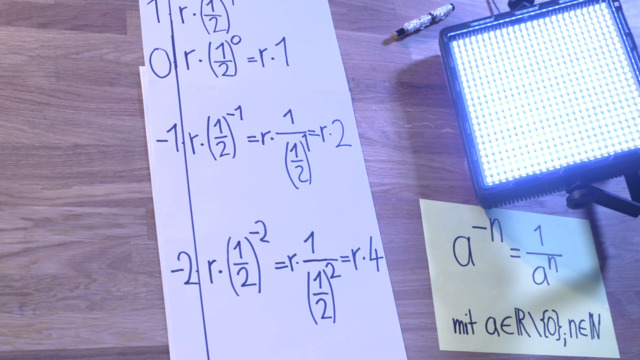 1 r·(1/2)^1
0 r·(1/2)^0 = r·1
-1 r·(1/2)^-1 = r·1/(1/2)^1 = r·2
-2 r·(1/2)^-2 = r·1/(1/2)^2 = r·4
a^-n = 1/a^n
mit a∈ℝ\{0}; n∈ℕ